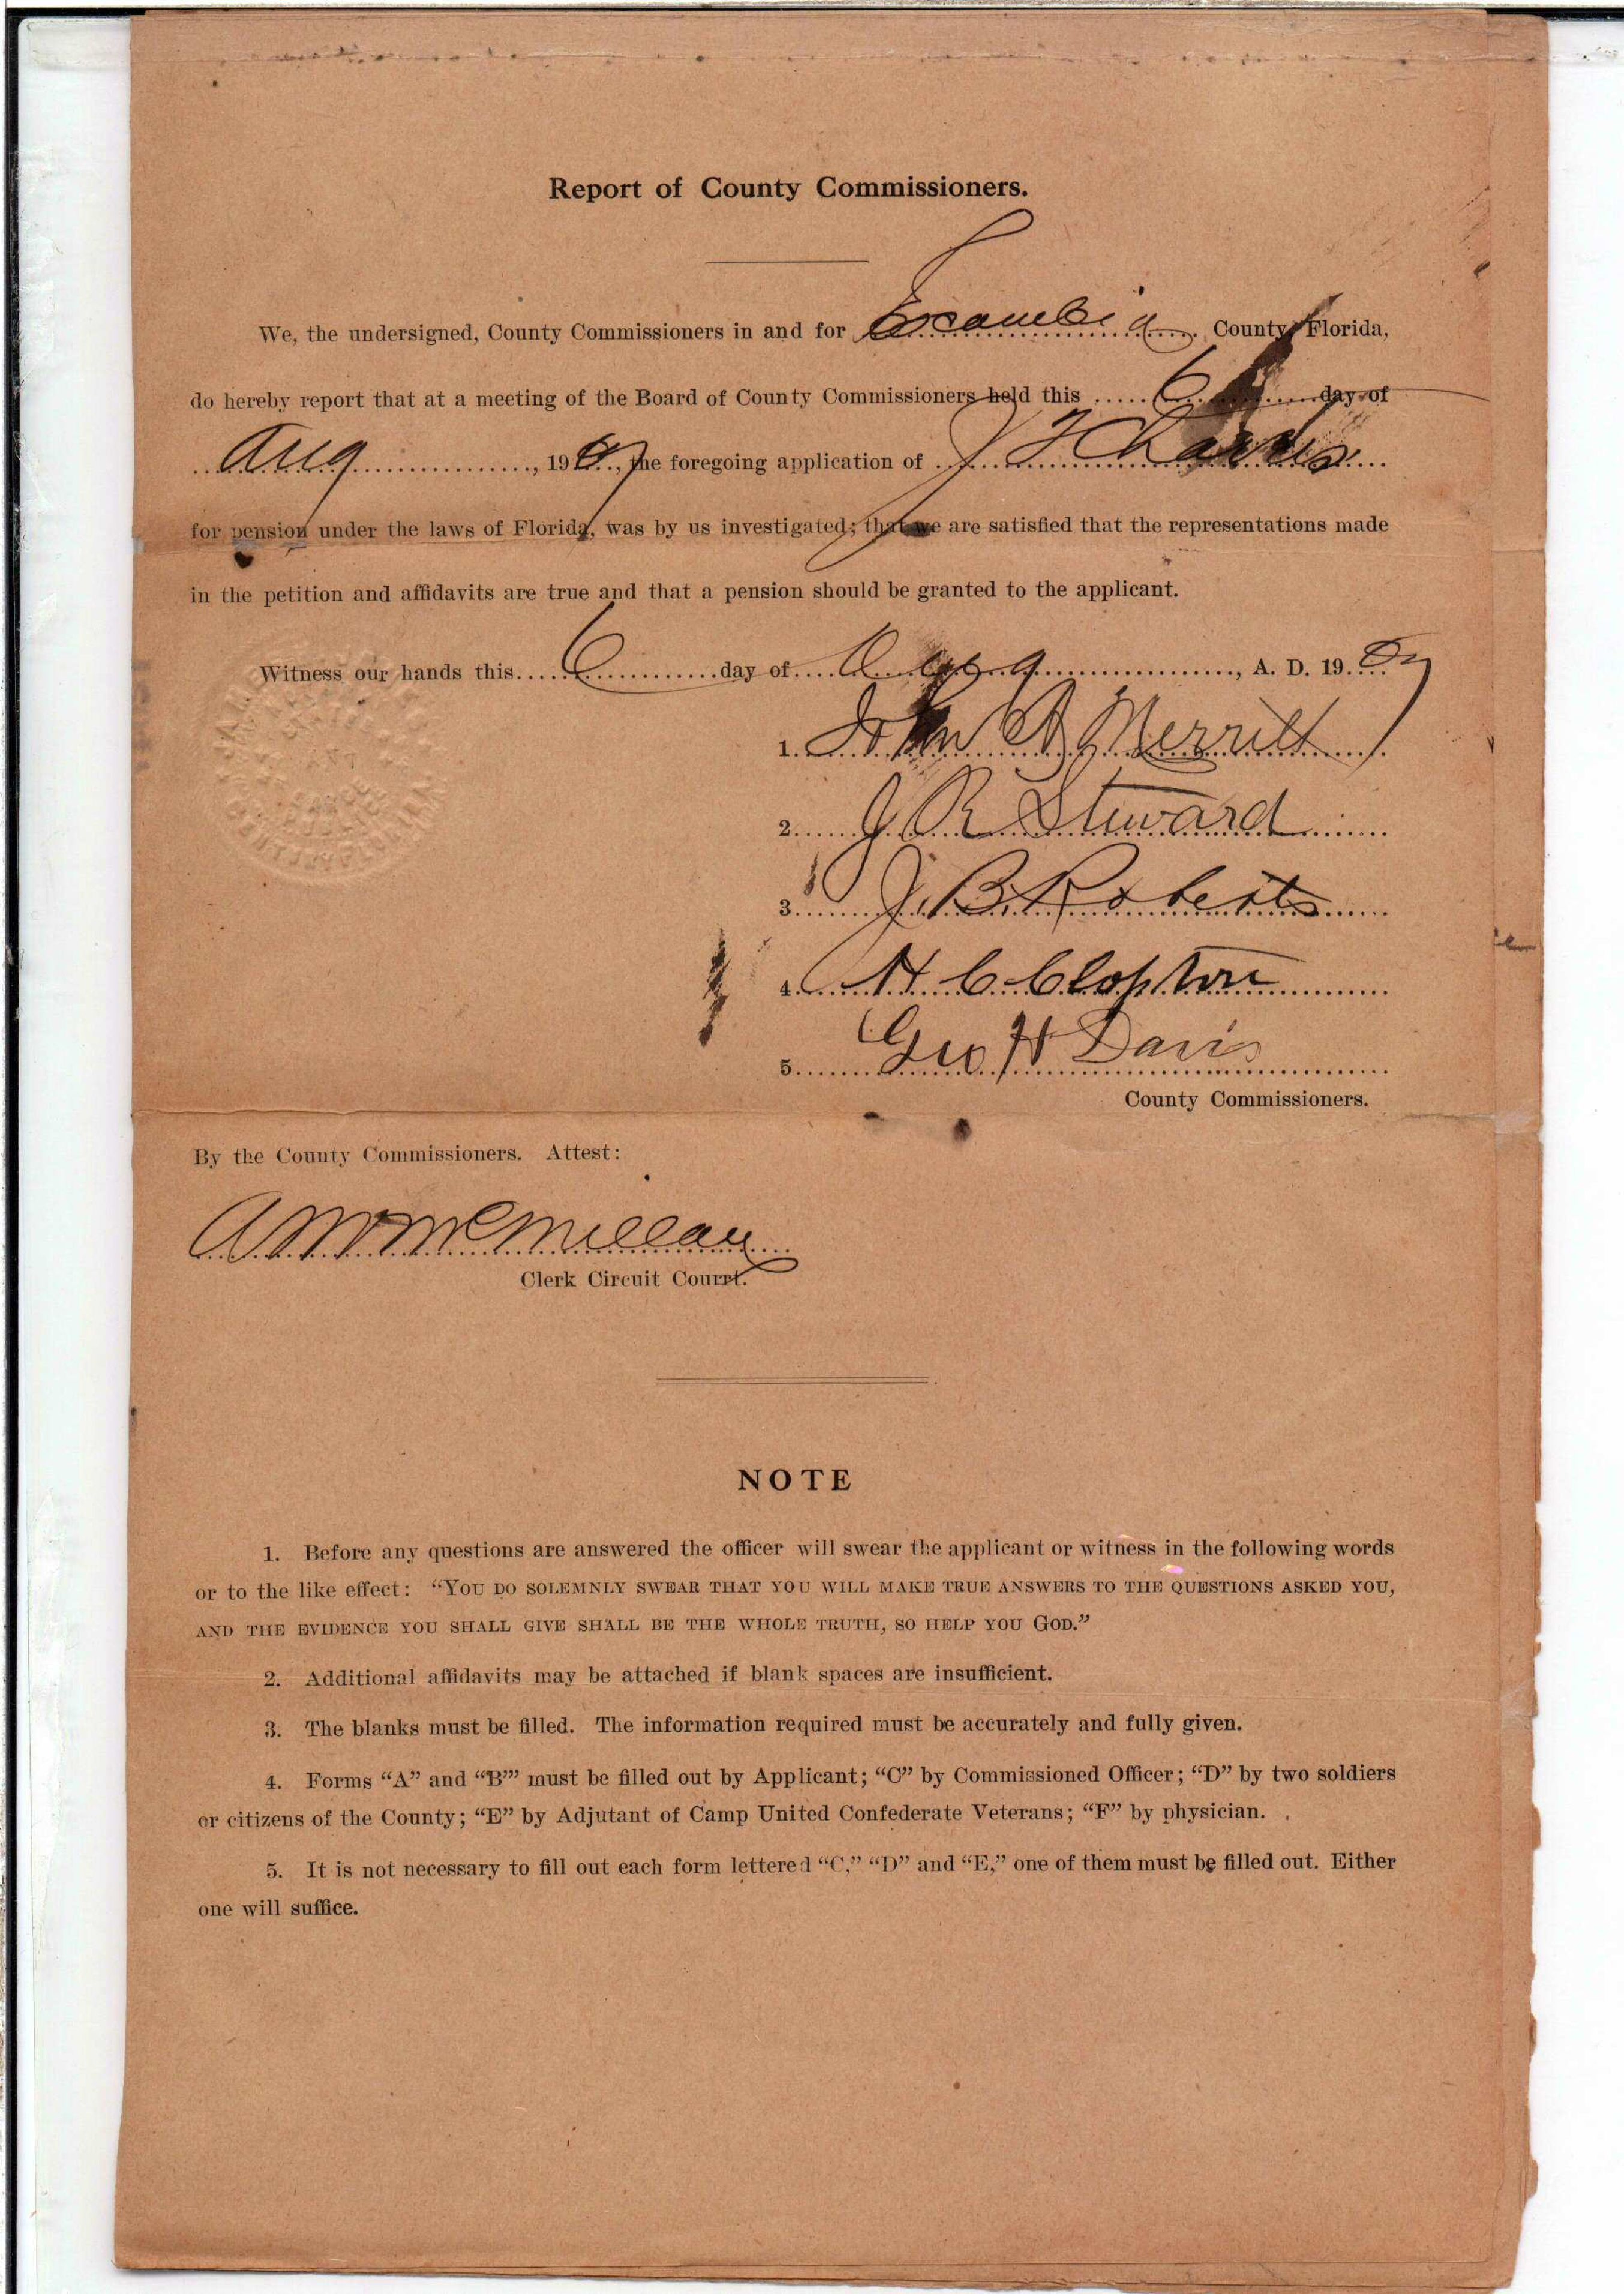 Report of County Commissioners.
We, the undersigned, County Commissioners in and for Escambia County Florida,
do hereby report that at a meeting of the Board of County Commissioners held this 6 day of
Aug, 1907, the foregoing application of J F
for pension under the laws of Florida, was by us investigated; that we are satisfied that the representations made
in the petition and affidavits are true and that a pension should be granted to the applicant.
Witness our hands this 6 day of Aug, A. D. 1907
1. John A Merritt
2. J R Steward
3. J. B. Roberts
4. H C Clopton
5. Geo H Davis
County Commissioners.
By the County Commissioners. Attest:
A M McMillan
Clerk Circuit Courrt.
NOTE
1. Before any questions are answered the officer will swear the applicant or witness in the following words
or to the like effect: “YOU DO SOLEMNLY SWEAR THAT YOU WILL MAKE TRUE ANSWERS TO THE QUESTIONS ASKED YOU,
AND THE EVIDENCE YOU SHALL GIVE SHALL BE THE WHOLE TRUTH, SO HELP YOU GOD.”
2. Additional affidavits may be attached if blank spaces are insufficient.
3. The blanks must be filled. The information required must be accurately and fully given.
4. Forms “A” and “B’” must be filled out by Applicant; “C” by Commissioned Officer; “D” by two soldiers
or citizens of the County; “E” by Adjutant of Camp United Confederate Veterans; “F” by physician.
5. It is not necessary to fill out each form lettered “C,” “D” and “E,” one of them must be filled out. Either
one will suffice.